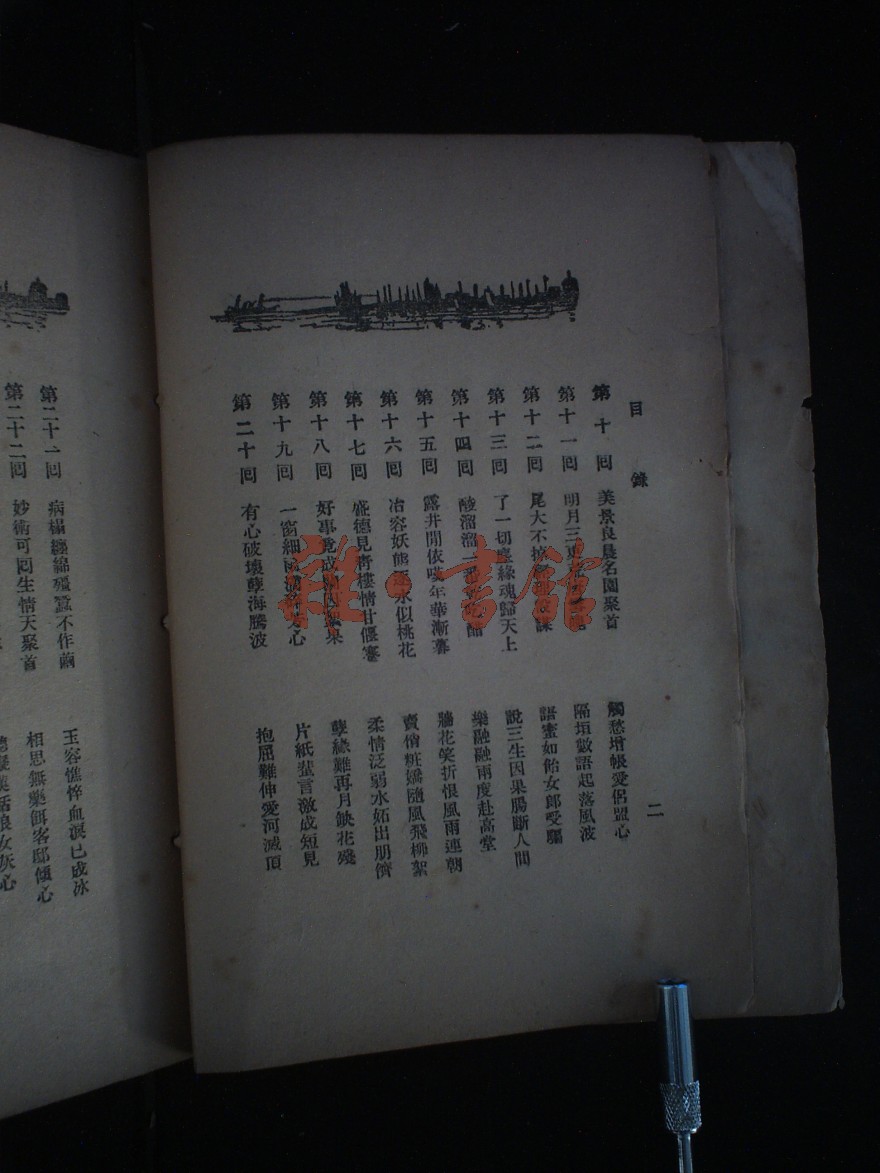 目錄
二
第十回 美景良晨名園聚首 觸愁增悵愛侶盟心
第十一回 明月三更 隔垣數語起落風波
第十二回 尾大不掉 語蜜如飴女郎受騙
第十三回 了一切塵緣魂歸天上 說三生因果腸斷人間
第十四回 酸溜溜一番 醋 樂融融兩度赴高堂
第十五回 露井閒依嘆年華漸暮 牆花笑折恨風雨連朝
第十六回 冶容妖態逐水似桃花 賣俏粧嬌隨風飛柳絮
第十七回 盛德見青樓情甘偃蹇 柔情泛弱水妬出朋儕
第十八回 好事竟成 果 孽緣難再月缺花殘
第十九回 一窗細雨 心 片紙蜚言激成短見
第二十回 有心破壞孽海騰波 抱屈難伸愛河滅頂
第二十一回 病榻纏綿殭蠶不作繭 玉容憔悴血淚已成冰
第二十二回 妙術可回生情天聚首 相思無藥餌客邸傾心
雜·書館